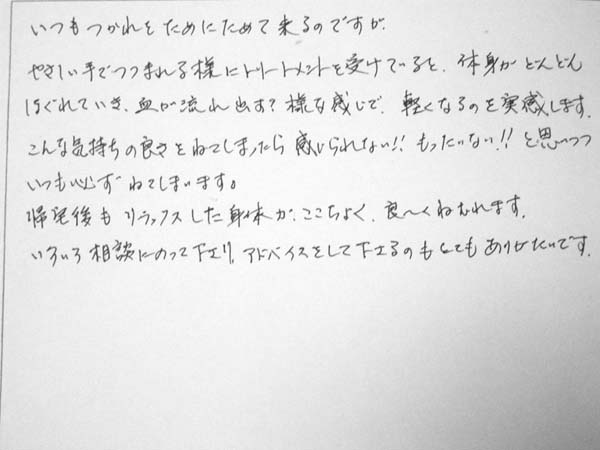 いつもつかれをためにためて来るのですが、
やさしい手でつつまれる様にトリートメントを受けていると、体身がどんどん
ほぐれていき、血が流れ出す？様な感じで、軽くなるのを実感します。
こんな気持ちの良さをねてしまったら感じられない!! もったいない!! と思いつつ
いつも必ずねてしまいます。
帰宅後もリラックスした身体が、ここちよく、良〜くねむれます。
いろいろ相談にのって下さり、アドバイスをして下さるのもとてもありがたいです。